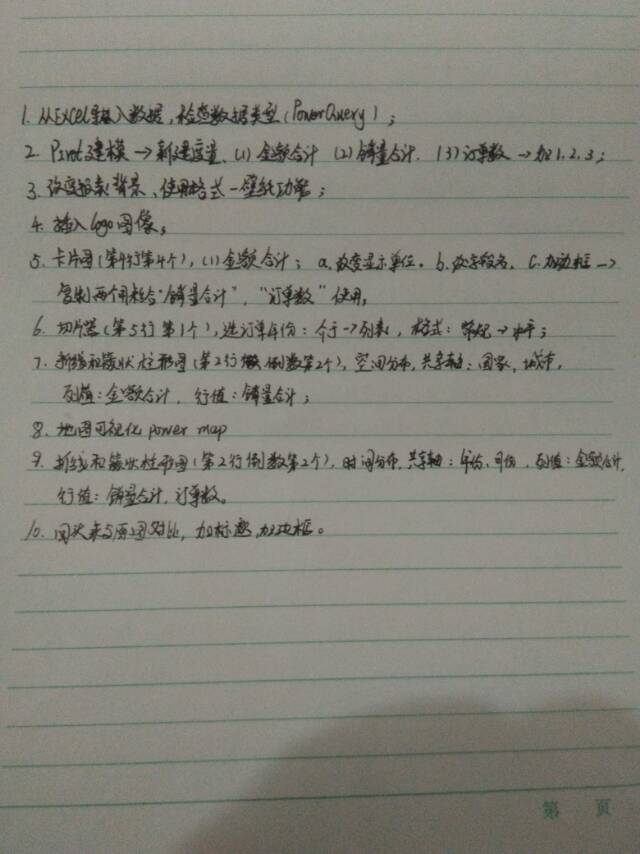 1. 从Excel导入数据,检查数据类型(PowerQuery);
2. Pivot建模→新建度量、(1)金额合计 (2)销量合计. (3)订单数→加1.2.3;
3. 改变报表背景、使用格式-壁纸功能;
4. 插入logo图像。
5. 卡片图(第4行第4个),(1)金额合计; a.改变显示单位。b.文字段名。C.加边框→
复制两个用来给"销量合计","订单数"使用。
6. 切片器(第5行第1个),选订单年份:介于→列表,格式:常规→水平;
7. 折线和簇状柱形图(第2行倒数第2个),空间分布,共享轴:国家,城市,
列值:金额合计,行值:销量合计;
8. 地图可视化 power map
9. 折线和簇状柱形图(第2行倒数第2个),时间分布,共享轴:年份、月份,列值:金额合计,
行值:销量合计,订单数。
10. 回头来与原图对比,加标题,加边框。
第 頁